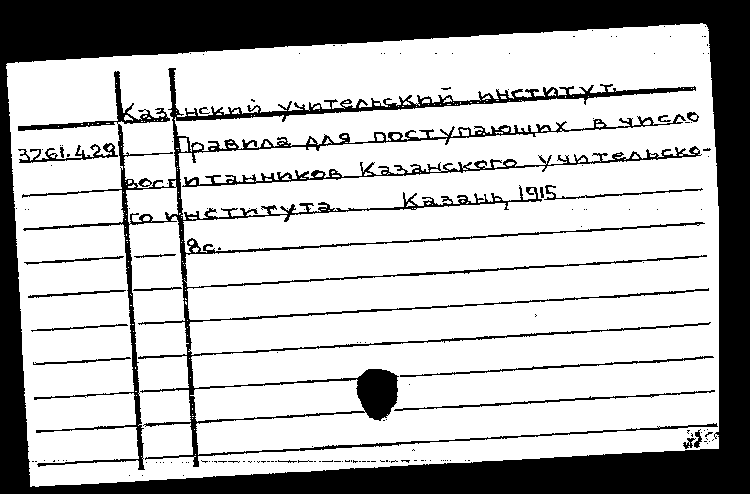 Казанский учительский институт.
3261.4.29. Правила для поступающих в число
воспитанников Казанского учительско-
го института. Казань, 1915.
8с.